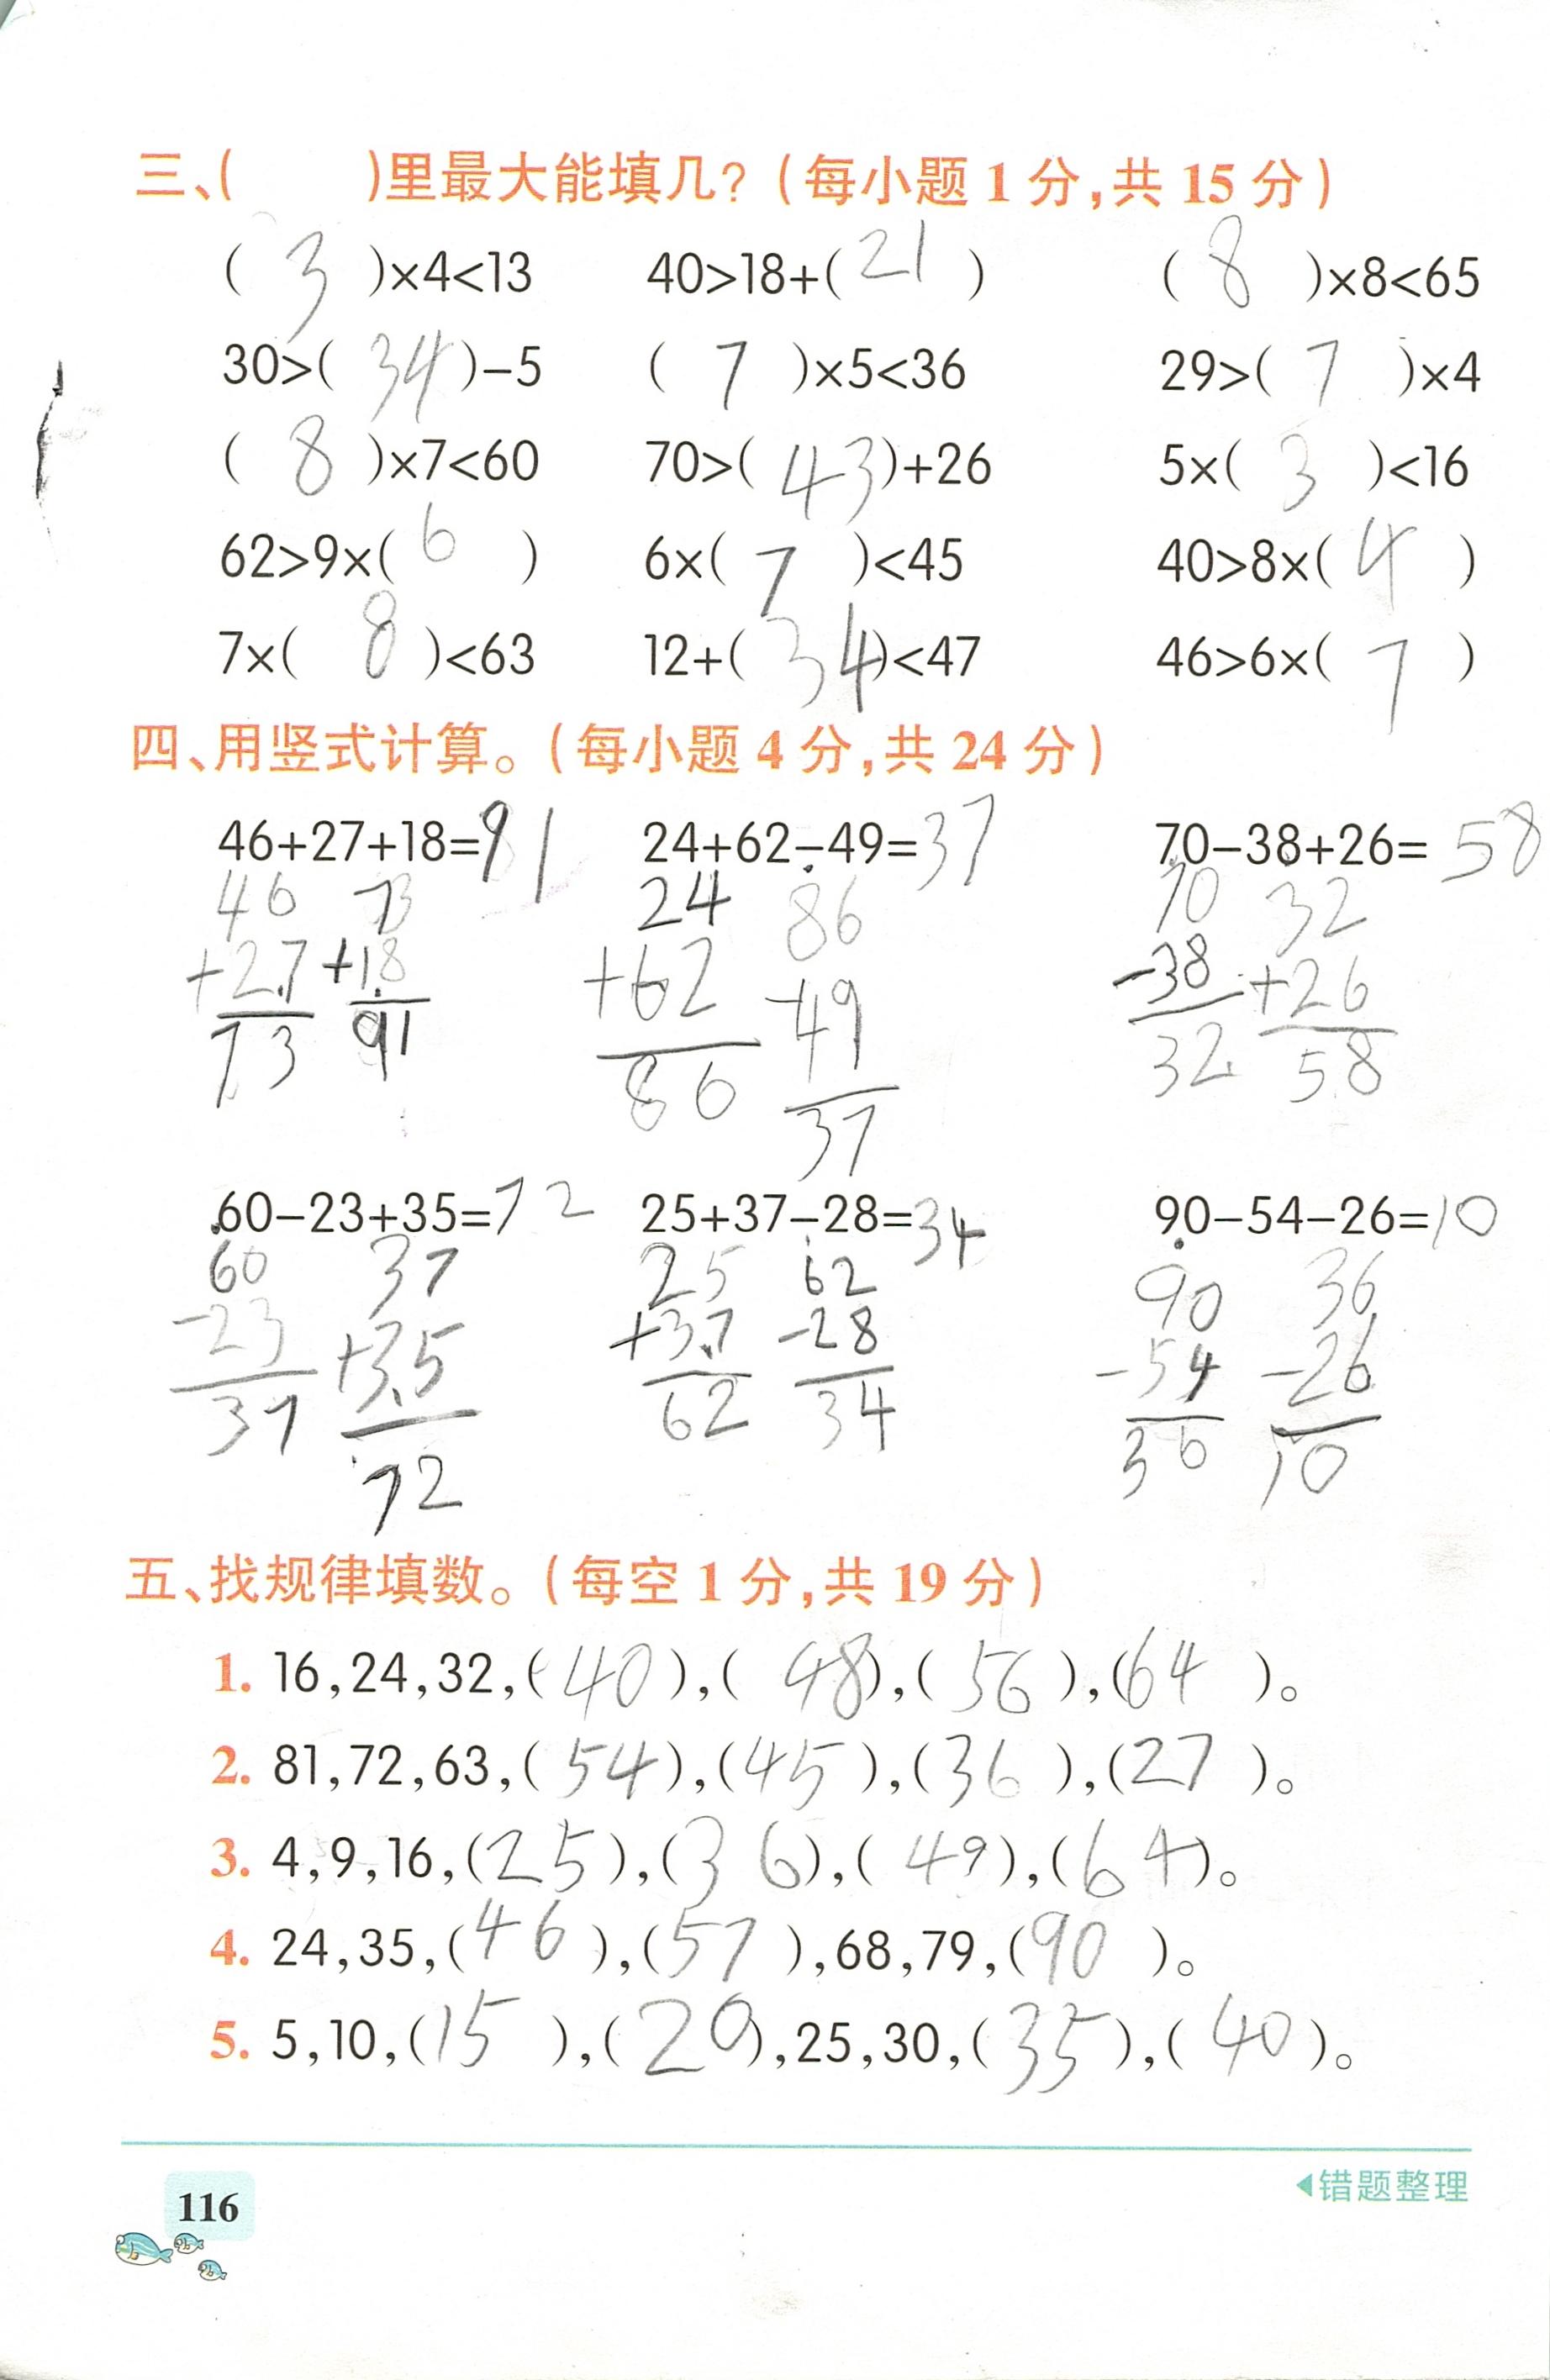 三、( )里最大能填几？(每小题 1 分,共 15 分)
( 3 )×4<13 40>18+( 21 ) ( 8 )×8<65
30>( 34 )-5 ( 7 )×5<36 29>( 7 )×4
( 8 )×7<60 70>( 43 )+26 5×( 3 )<16
62>9×( 6 ) 6×( 7 )<45 40>8×( 4 )
7×( 8 )<63 12+( 34 )<47 46>6×( 7 )
四、用竖式计算。(每小题 4 分,共 24 分)
46+27+18=91 24+62-49=37 70-38+26=58
46 73 24 86 70 32
+27 +18 +62 -49 -38 +26
73 91 86 37 32 58
60-23+35=72 25+37-28=34 90-54-26=10
60 37 25 62 90 36
-23 +35 +37 -28 -54 -26
37 72 62 34 36 10
五、找规律填数。(每空 1 分,共 19 分)
1. 16,24,32,( 40 ),( 48 ),( 56 ),( 64 )。
2. 81,72,63,( 54 ),( 45 ),( 36 ),( 27 )。
3. 4,9,16,( 25 ),( 36 ),( 49 ),( 64 )。
4. 24,35,( 46 ),( 57 ),68,79,( 90 )。
5. 5,10,( 15 ),( 20 ),25,30,( 35 ),( 40 )。
116
◀错题整理